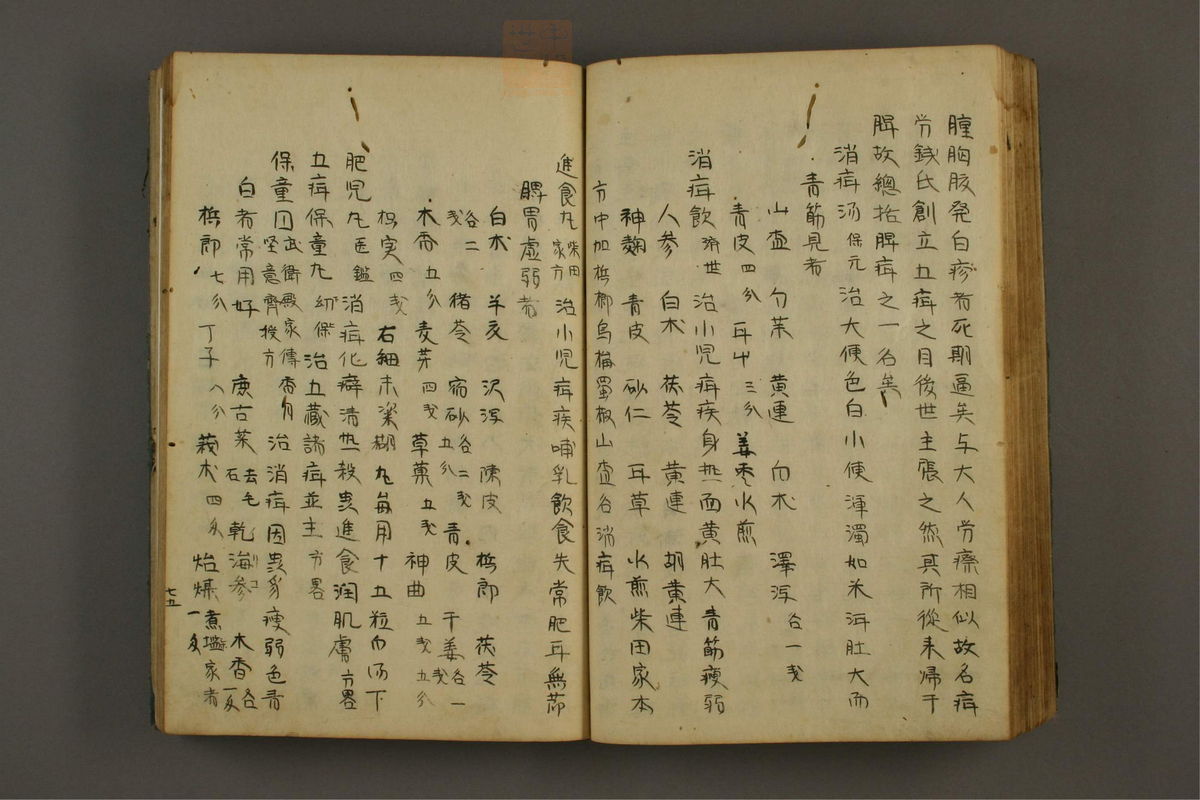 腫胸胘発白疹者死期逼矣与大人労瘵相似故名疳
労錢氏創立五疳之目後世主張之然其所從来帰于
脾故總括脾疳之一名矣
消疳汤 保元 治大便色白小便渾濁如米泔肚大而
青筋見者
山查 勺茱 黄連 白朮 澤泻 各一戔
青皮四分 耳中三分 姜枣水煎
消疳飲 済世 治小児疳疾身热而黄肚大青筋瘦弱
人参 白朮 茯苓 黄連 胡黄連
神麹 青皮 砂仁 耳草 水煎柴田家本
方中加梹榔烏梅蜀椒山查名消疳飲
進食丸 柴田家方 治小児疳疾哺乳飲食失常肥耳無節
脾胃虚弱者
白朮 羊亥 沢泻 陳皮 梹郎 茯苓
各二戔 猪苓 宿砂 各二戔五分 青皮 干姜 各一戔
木香五分 麦芽四戔 草菓五戔 神曲五戔五分
枳実四戔 右細末梁糊丸每用十五粒巾汤下
肥児丸 医鑑 消疳化癖清热殺虫進食潤肌膚 方畧
五疳保童丸 幼保 治五藏諸疳並主 方畧
保童円 武衛殿家傳 坚意齊授方 治消疳因虫多瘦弱色青
白者常用好 唐古菜 石 去毛 乾海参 木香 各一戔
梹郎七分 丁子八分 莪朮四分 煮塩家者
七五